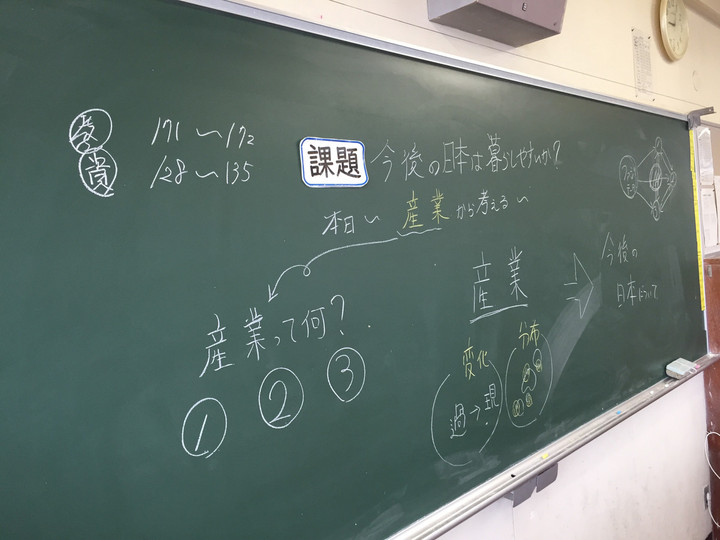 教 171〜172
資 128〜135
課題 今後の日本は暮らしやすいか?
本日〜 産業から考える〜
産業って何?
① ② ③
産業 ⇨ 今後の
日本について
変化
過→現
分布